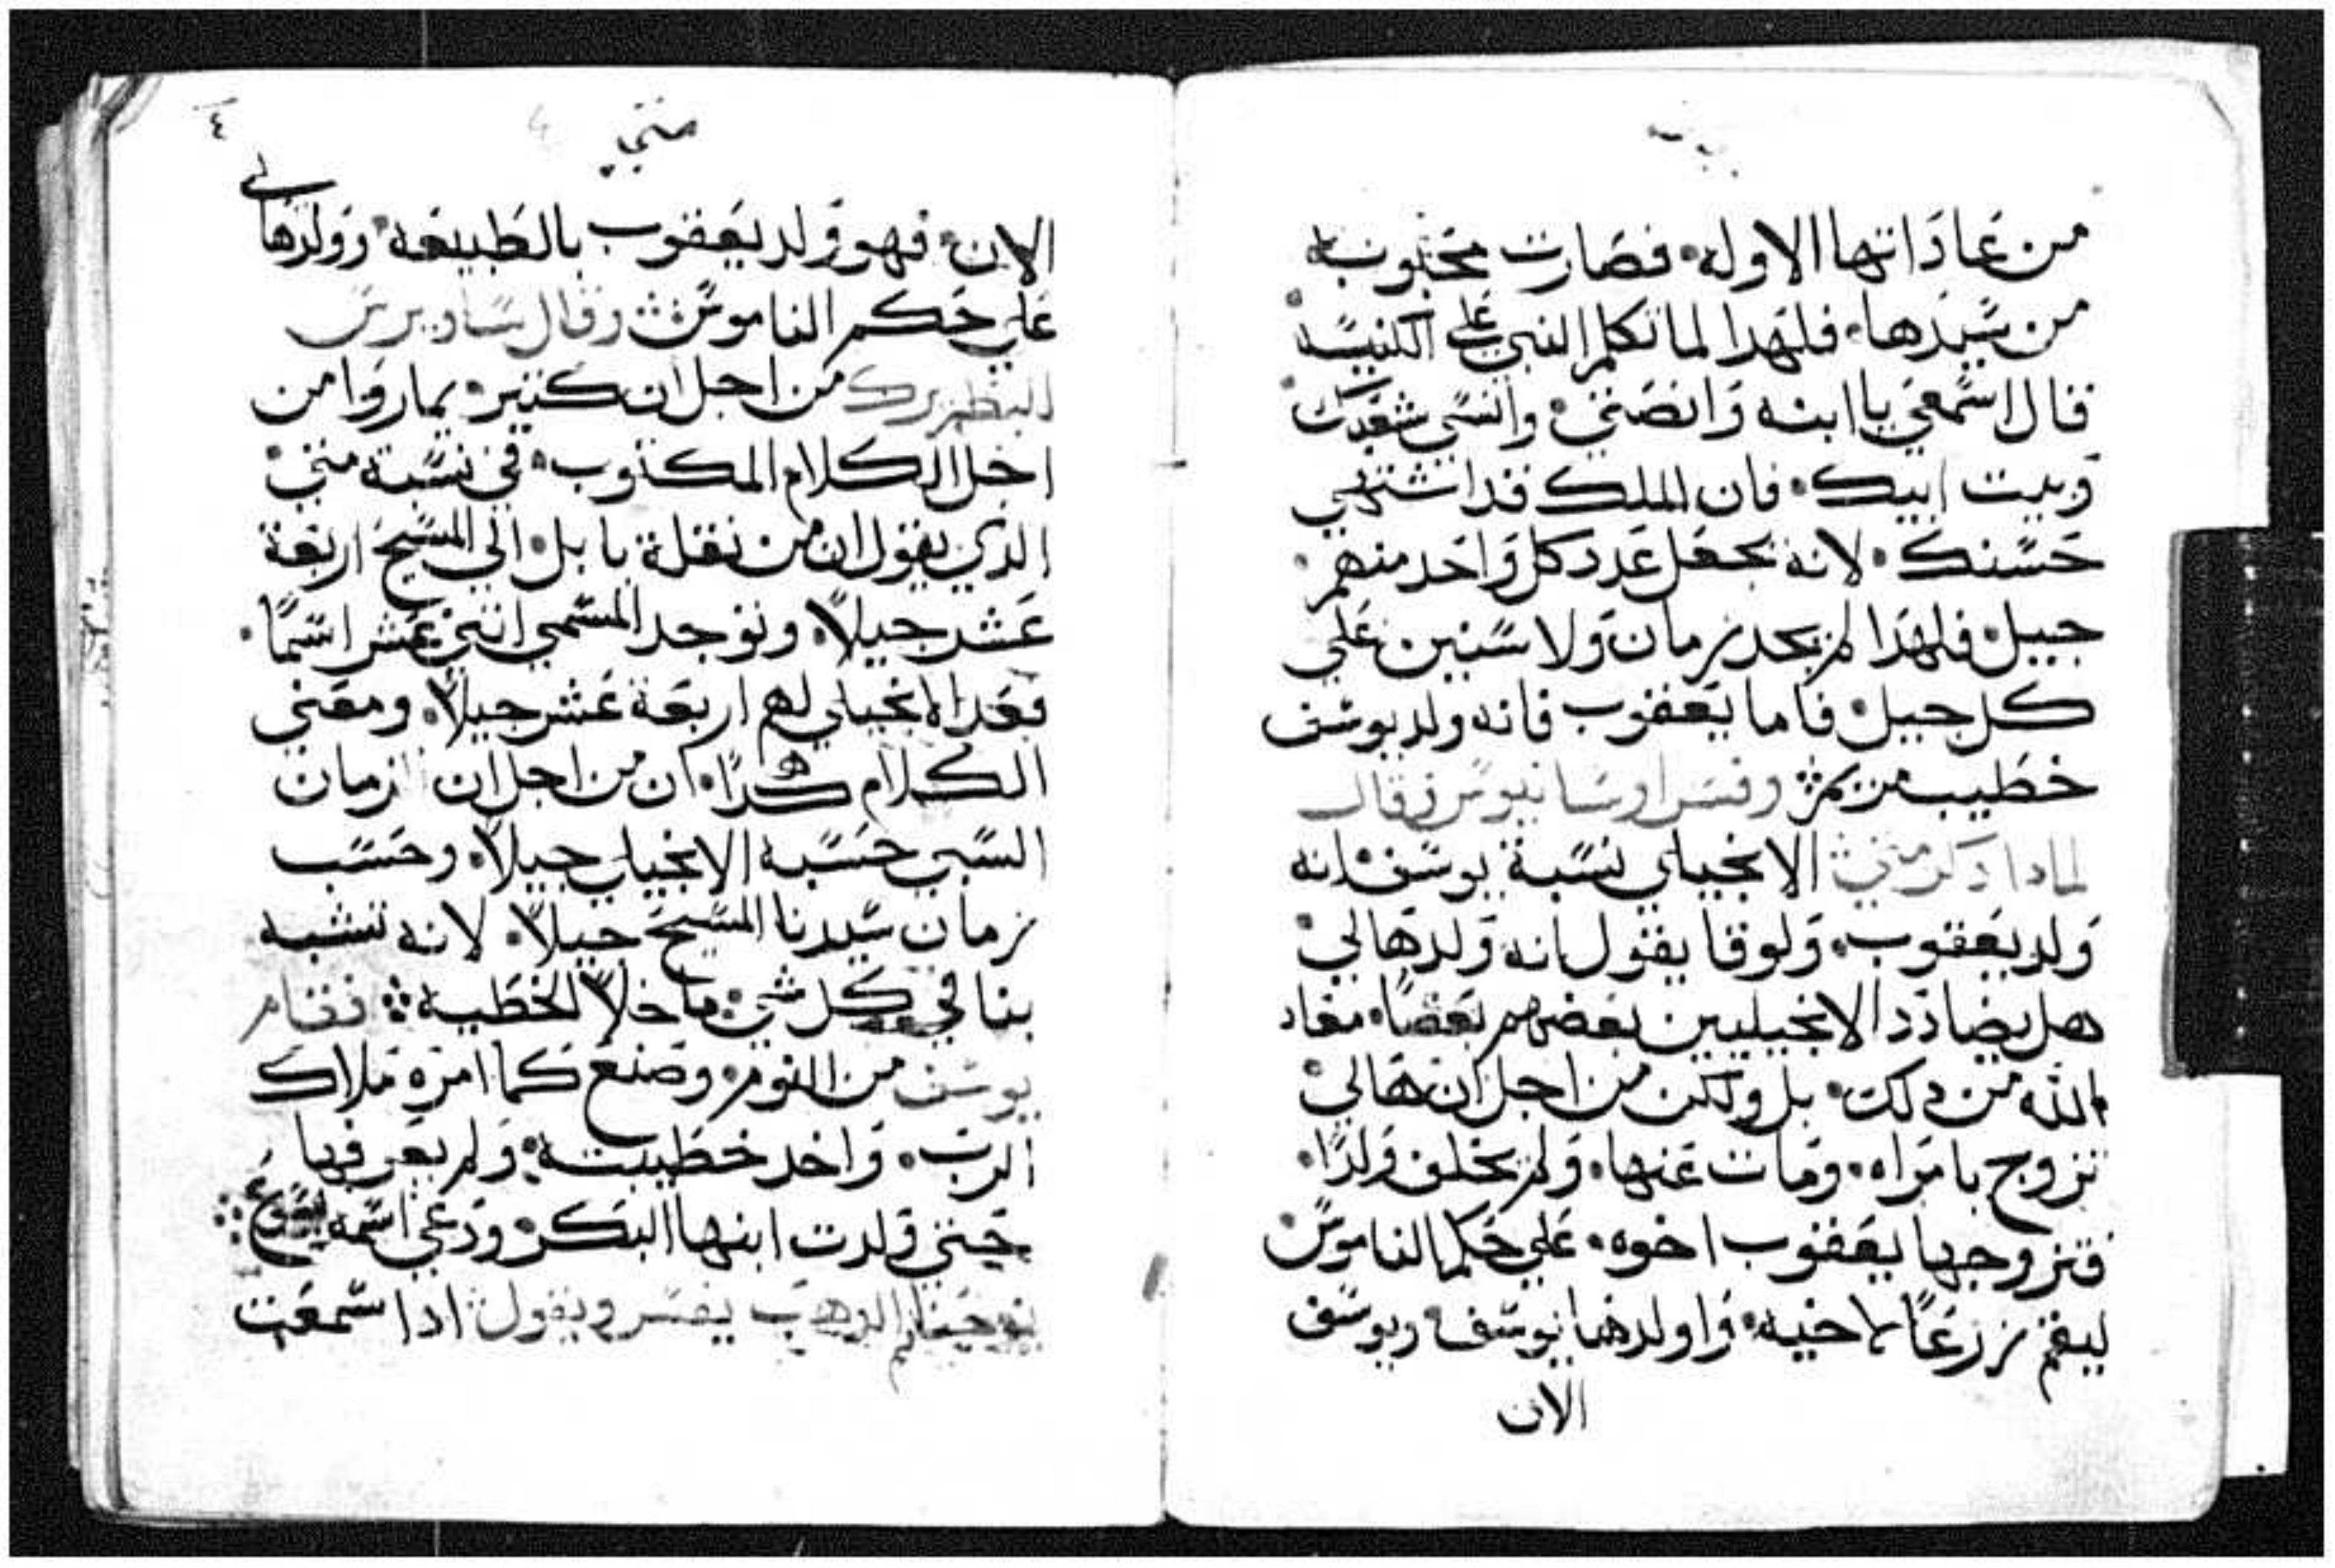 من عاداتها الاوله. فصارت محبوبه
من سيدها. فلهدا لما تكلم النبي علي الكنيسه
قال اسمعي يا ابنه وانصتي. وانسي شعبك
وبيت ابيك. فان الملك قد اشتهي
حسنك. لانه بجعل عدد كل واحد منهم.
جيل. فلهدا لم بحد زمان ولا سنين علي
كل جيل. فاما يعقوب فانه ولد يوسف
خطيب مريم ❖ وفسر اوسانيوس وقال
لمادا دكر متي الانجيلي نسبة يوسف. انه
ولد يعقوب. ولوقا يقول انه ولد هالي.
هل يضادد الانجيليين بعضهم بعضا. معاد
الله من دلك. بل ولكن من اجل ان هالي.
تزوج بامراه. ومات عنها. ولم يخلف ولدا.
فتزوجها يعقوب اخوه. علي حكم الناموس.
ليقم زرعا لاخيه. واولدها يوسف. ويوسف
الان
متي
٤
الان. فهو ولد يعقوب بالطبيعه. وولد هالي
علي حكم الناموس ❖ وقال ساويرس
البطريرك من اجل ان كتير. يماروا من
اجل الكلام المكتوب. في نسبة متي.
الدي يقول ان من نقلة بابل. الي المسيح اربعة
عشر جيلا. ونوجد المسمي اتني عشر اسما.
فعد الانجيلي لهم اربعة عشر جيلا. ومعني
الكلام هكدا. ان من اجل ان ازمان
السبي حسبه الانجيلي جيلا. وحسب
زمان سيدنا المسيح جيلا. لانه تشبه
بنا في كل شي. ما خلا الخطيه ❖ فقام
يوسف من النوم. وصنع كما امره ملاك
الرب. واخد خطيبته. ولم يعرفها
حتي ولدت ابنها البكر. ودعي اسمه يسوع ❖
يوحنا فم الدهب يفسر ويقول ادا سمعت